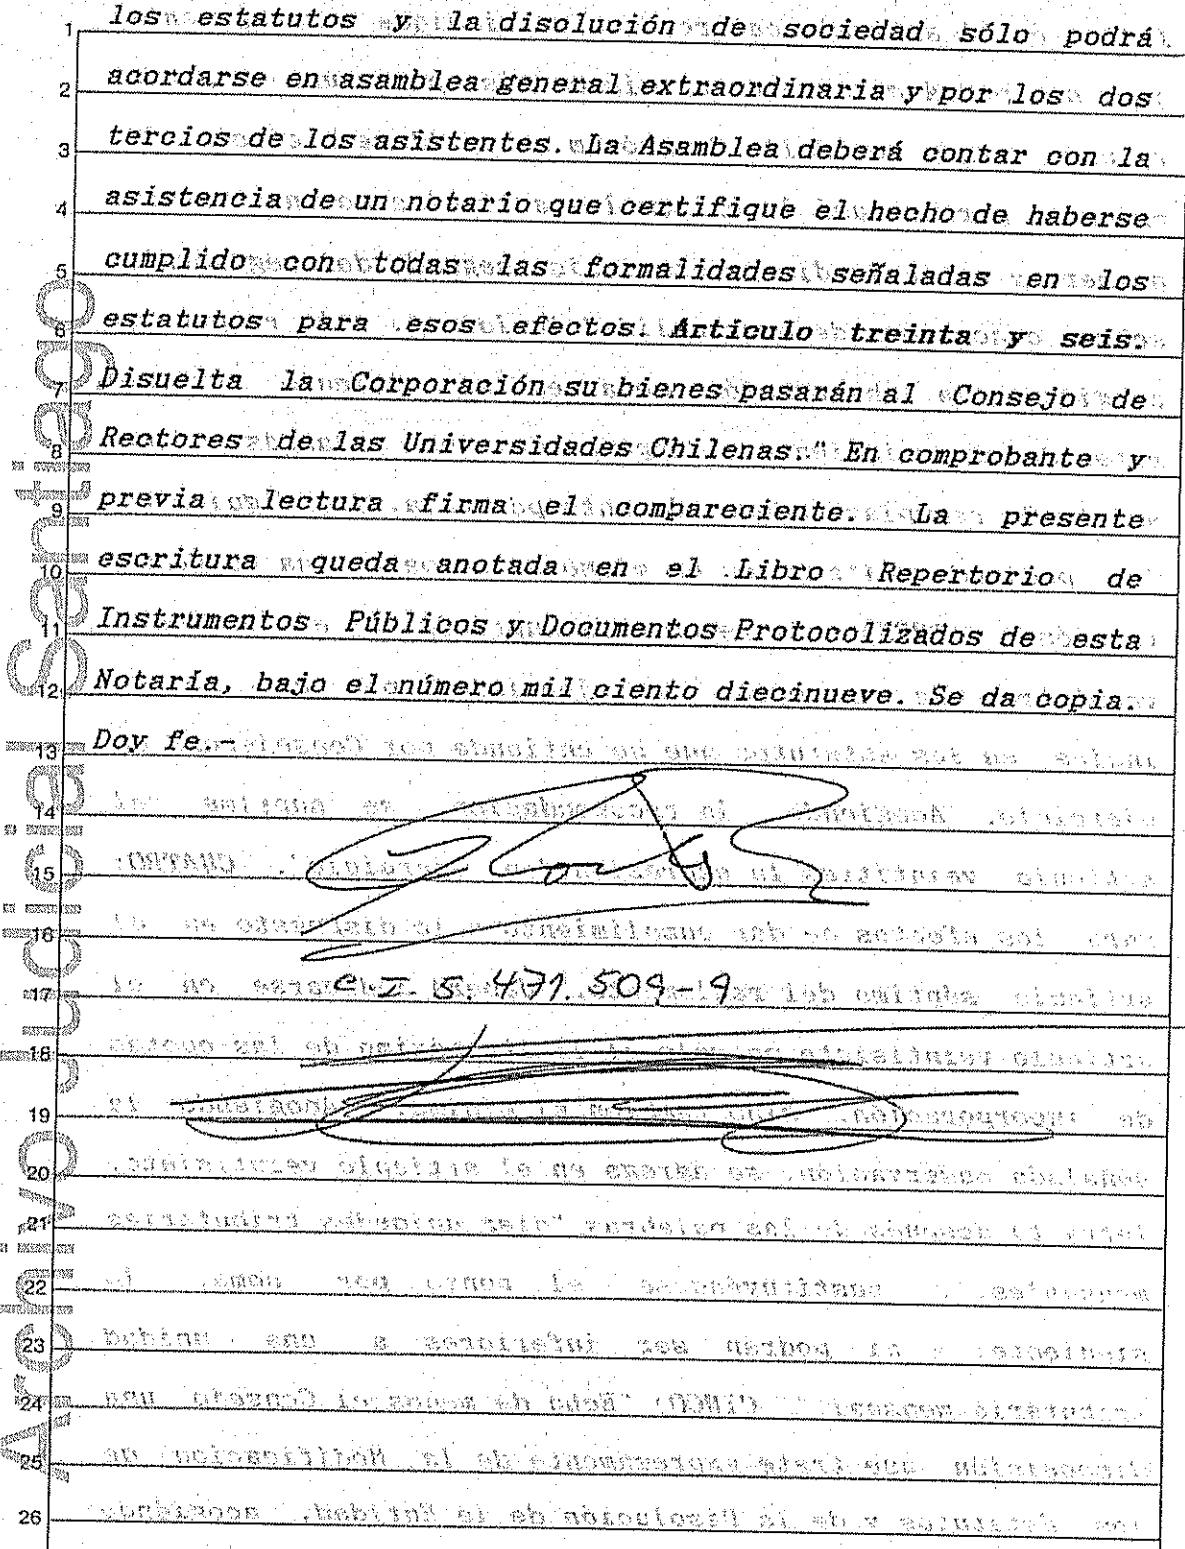 los estatutos y la disolución de sociedad sólo podrá
acordarse en asamblea general extraordinaria y por los dos
tercios de los asistentes. La Asamblea deberá contar con la
asistencia de un notario que certifique el hecho de haberse
cumplido con todas las formalidades señaladas en los
estatutos para esos efectos. Artículo treinta y seis.
Disuelta la Corporación su bienes pasarán al Consejo de
Rectores de las Universidades Chilenas." En comprobante y
previa lectura firma el compareciente. La presente
escritura queda anotada en el Libro Repertorio de
Instrumentos Públicos y Documentos Protocolizados de esta
Notaría, bajo el número mil ciento diecinueve. Se da copia.
Doy fe.-
C.I. 5.471.509-9
1
2
3
4
5
6
7
8
9
10
11
12
13
14
15
16
17
18
19
20
21
22
23
24
25
26
Archivo Judicial Santiago